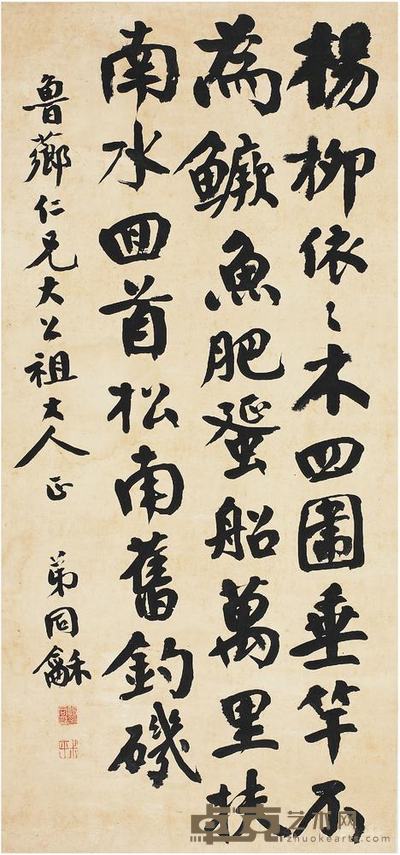 楊柳依〻木四圍垂竿不
為鱖魚肥蜑船萬里扶
南水回首松南舊釣磯
魯薌仁兄大公祖大人正 弟同龢
卓克艺术网
zhuokearts.com